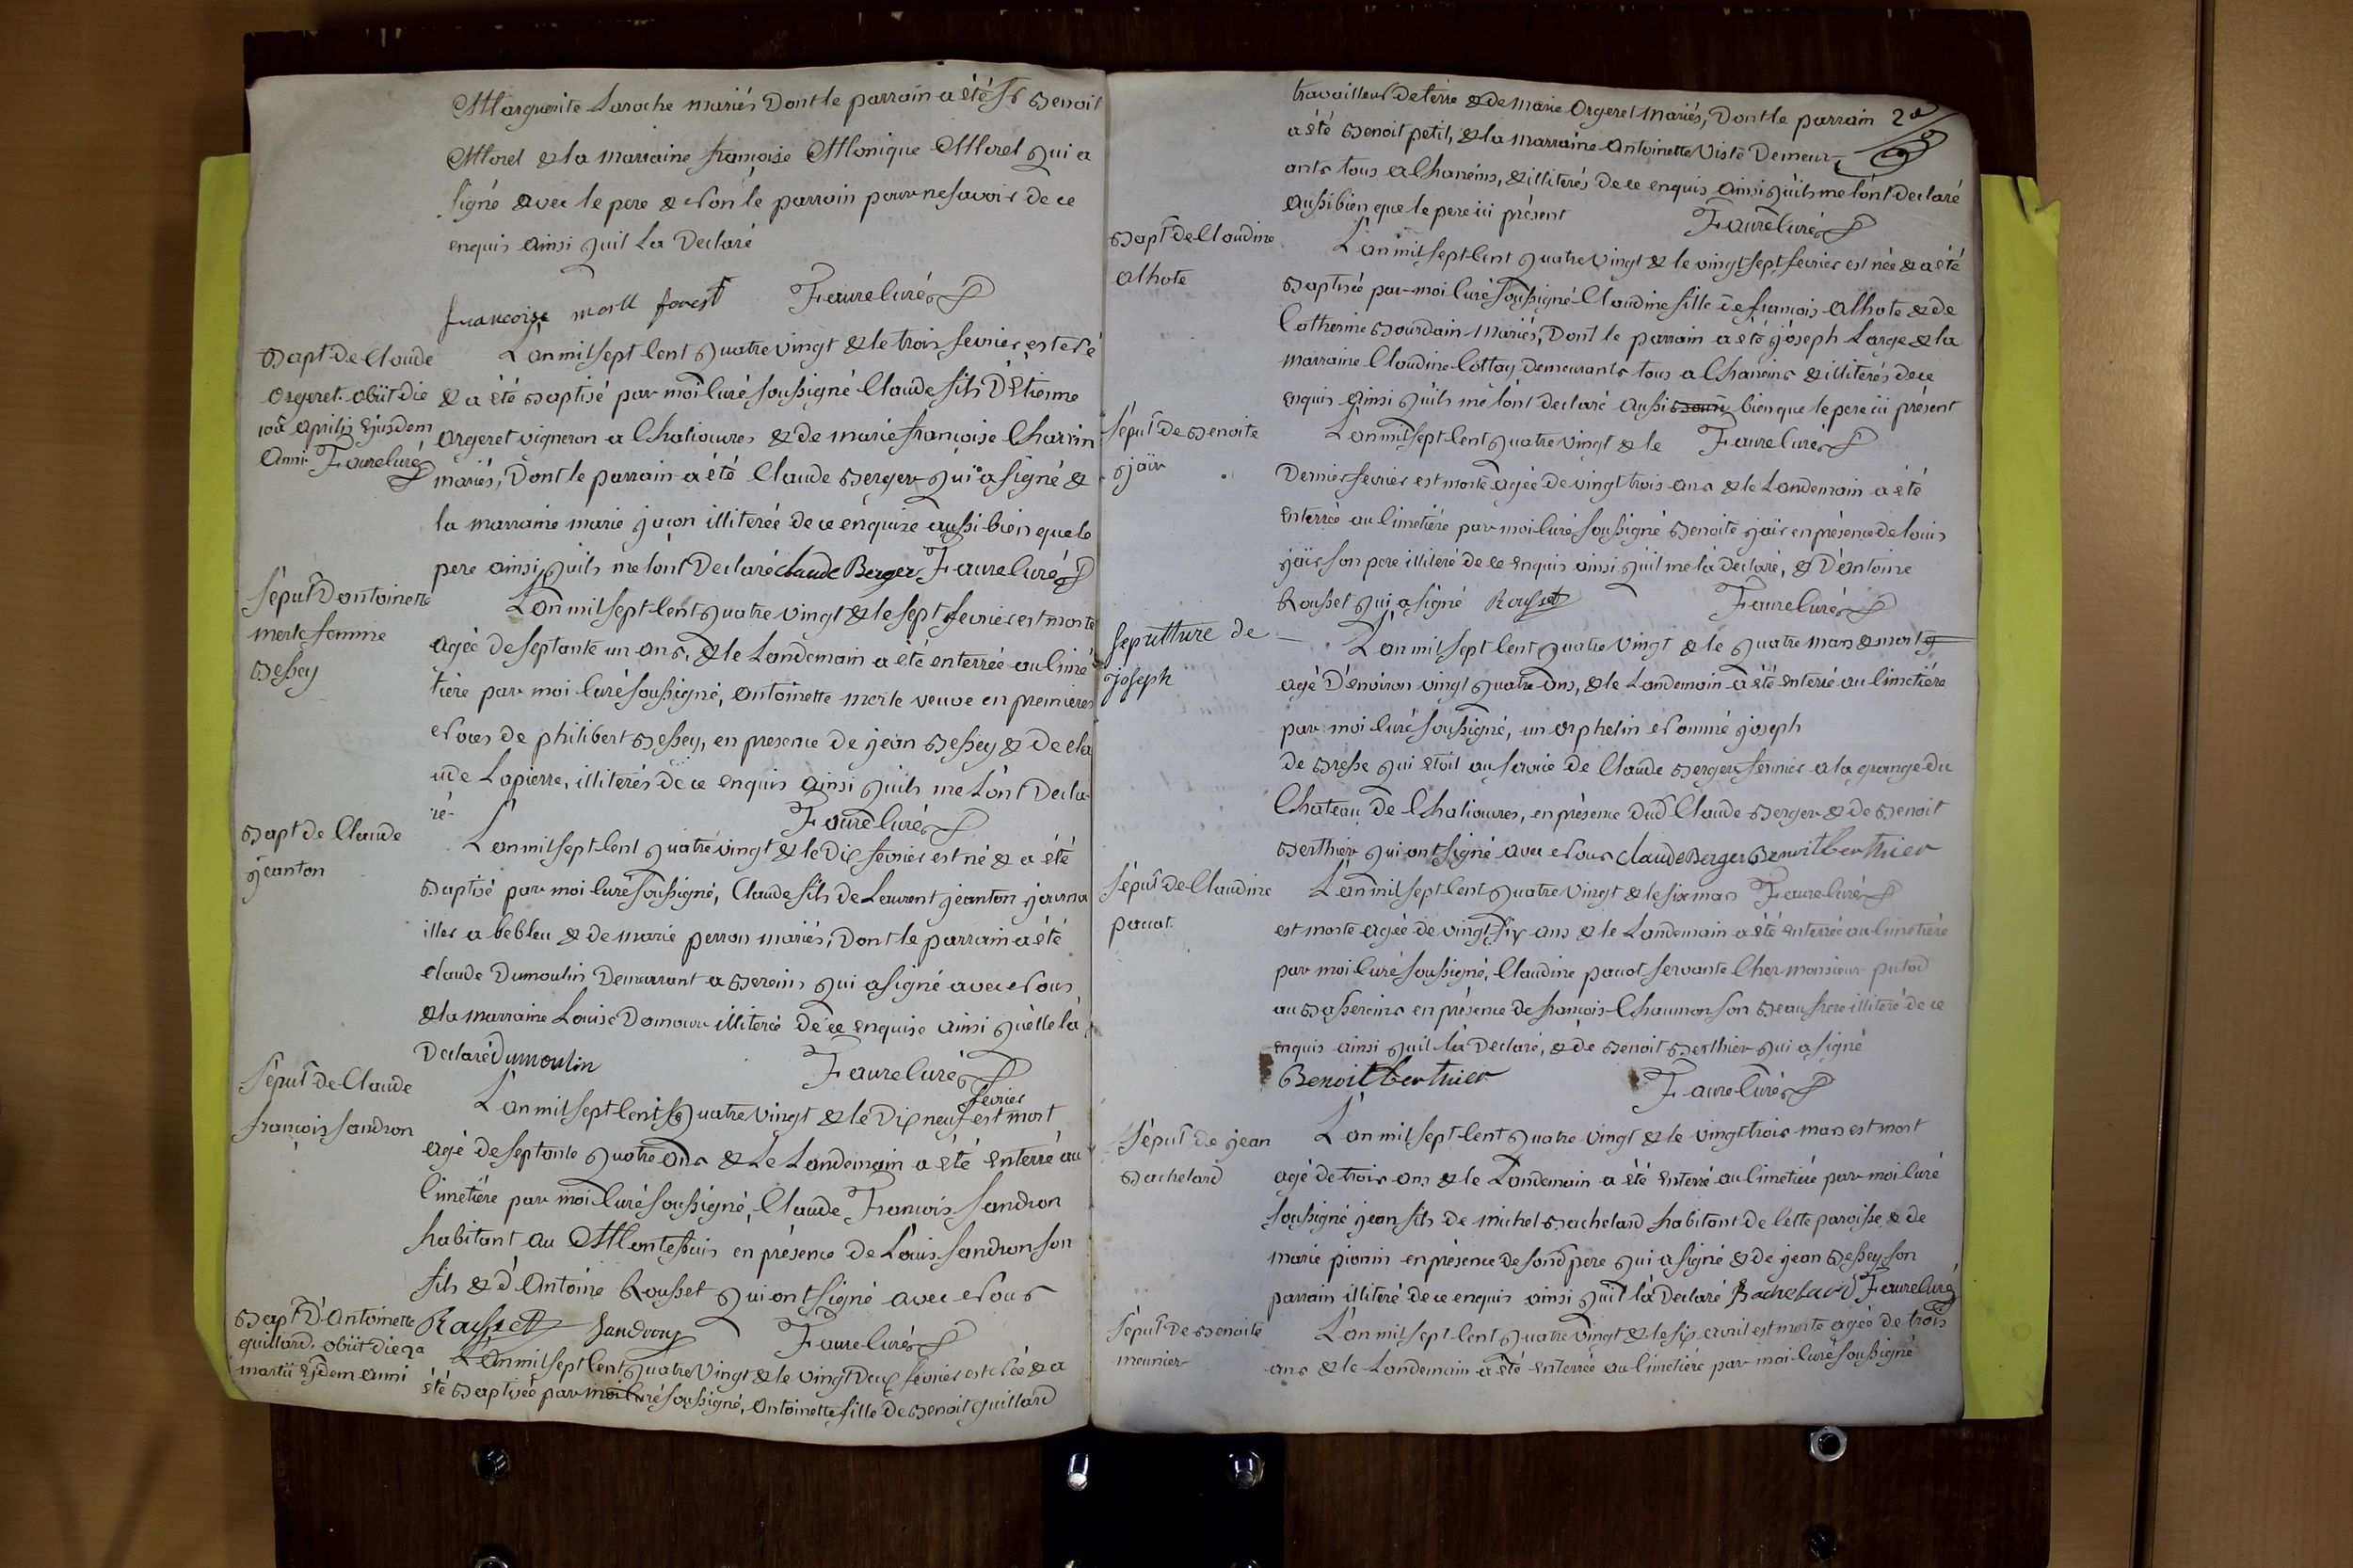 Marguerite Laroche mariés Dont le parrain a été Sr Benoit
Morel & la Marraine françoise Monique Morel qui a
signé avec le pere & Non le parrain pour ne savoir de ce
enquis ainsi quil La Declaré
francoise morll forest Faure Curé
Bapt. de Claude
Orgeret. obiit die
10a aprilis Ejusdem
Anni. Faure Curé
L'an mil sept Cent quatre vingt & le trois fevrier est Né
& a été Baptisé par moi Curé soussigné Claude fils D'Etienne
Orgeret vigneron a Chaliouvres & de marie françoise Charvin
mariés, Dont le parrain a été Claude Berger qui a signé &
la marraine marie jacon illiterée de ce enquise aussi bien que le
pere ainsi quils me lont Declaré claude Berger Faure Curé
Sepult. D'antoinette
merle femme
Bessey
L'an mil sept Cent quatre vingt & le sept fevrier est morte
agée de septante un ans, & le Landemain a été enterrée au Cime
tière par moi Curé soussigné, antoinette merle veuve en premieres
Noces de philibert Bessey, en presence de jean Bessey & de cla
ude Lapierre, illiterés de ce enquis ainsi quils me L'ont Decla
ré. Faure Curé
Bapt de Claude
jeanton
L'an mil sept Cent quatre vingt & le Dix fevrier est né & a été
Baptisé par moi Curé soussigné, Claude fils de Laurent jeanton journa
iller a bebleu & de marie perron mariés, Dont le parrain a été
claude Dumoulin Demeurant a Bereins qui a signé avec Nous
& la marraine Louise Damour illiterée de ce enquise ainsi quelle la
Declaré Dumoulin Faure Curé
Sepult de Claude
francois Sandron
L'an mil sept Cent quatre vingt & le Dix neuf fevrier est mort
agé de septante quatre ans & Le Landemain a été Enterré au
Cimetiére par moi Curé soussigné, Claude François Sandron
habitant au Montessuis en présence de Louis Sandron son
fils & d'Antoine Rousset qui ont signé avec Nous
Rousset Sandron Faure Curé
Bapt D'Antoinette
guillard. obiit die 2a
martii Ejdem anni
L'an mil sept Cent quatre vingt & le vingt Deux fevrier est Née & a
été Baptisée par moi Curé soussigné, antoinette fille de Benoit guillard
travailleur de terre & de marie Orgeret mariés, Dont le parrain
a été Benoit petit, & la marraine Antoinette Viste Demeur-
ants tous a Chaneins, & illiterés de ce enquis ainsi quils me lont declaré
aussi bien que le pere ici présent Faure Curé
Bapt. de Claudine
alhote
L'an mil sept Cent quatre vingt & le vingt sept fevrier est née & a été
Baptisée par moi Curé soussigné Claudine fille de françois alhote & de
Catherine Bourdain mariés, Dont le parrain a été joseph Large & la
marraine Claudine Cottay demeurants tous a Chaneins & illiterés de ce
enquis ainsi quils me lont declaré aussi bien que le pere ici présent
Faure Curé
Sepult de Benoite
jair
L'an mil sept Cent quatre vingt & le
Dernier fevrier est morte agée de vingt trois ans & le Landemain a été
Enterrée au Cimetiére par moi Curé soussigné Benoite jair en présence de louis
jaïr son pere illiteré de ce enquis ainsi quil me la declaré, & D'antoine
Rousset qui a signé Rousset Faure Curé
sepultture de
joseph
L'an mil sept Cent quatre vingt & le quatre mars & mort
agé D'environ vingt quatre ans, & le Landemain a été Enterré au Cimetiére
par moi Curé soussigné, un orphelin Nommé joseph
de Bresse qui étoit au service de Claude Berger fermier a la grange du
Chateau de Chaliouvres, en présence dud Claude Berger & de Benoit
Berthier qui ont signé avec Nous Claude Berger Benoit berthier
Faure Curé
Sepult de Claudine
pacot
L'an mil sept Cent quatre vingt & le six mars
est morte agée de vingt six ans & le Landemain a été Enterrée au Cimetiére
par moi Curé soussigné, Claudine pacot servante Cher monsieur putod
au Bassereins en présence de francois Chaumon son Beaufrere illiteré de ce
enquis ainsi quil la Declaré, & de Benoit Berthier qui a signé
Benoit berthier Faure Curé
Sepult de jean
Bachelard
L'an mil sept Cent quatre vingt & le vingt trois mars est mort
agé de trois ans & le Landemain a été Enterré au Cimetiére par moi Curé
soussigné jean fils de michel Bachelard habitant de Cette paroisse & de
marie pionin en présence de sond pere qui a signé & de jean Bessey son
parrain illiteré de ce enquis ainsi quil la Declaré Bachelard Faure Curé
Sepult de Benoite
meunier
L'an mil sept Cent quatre vingt & le six avril est morte agée de trois
ans & le Landemain a été enterrée au Cimetiére par moi Curé soussigné